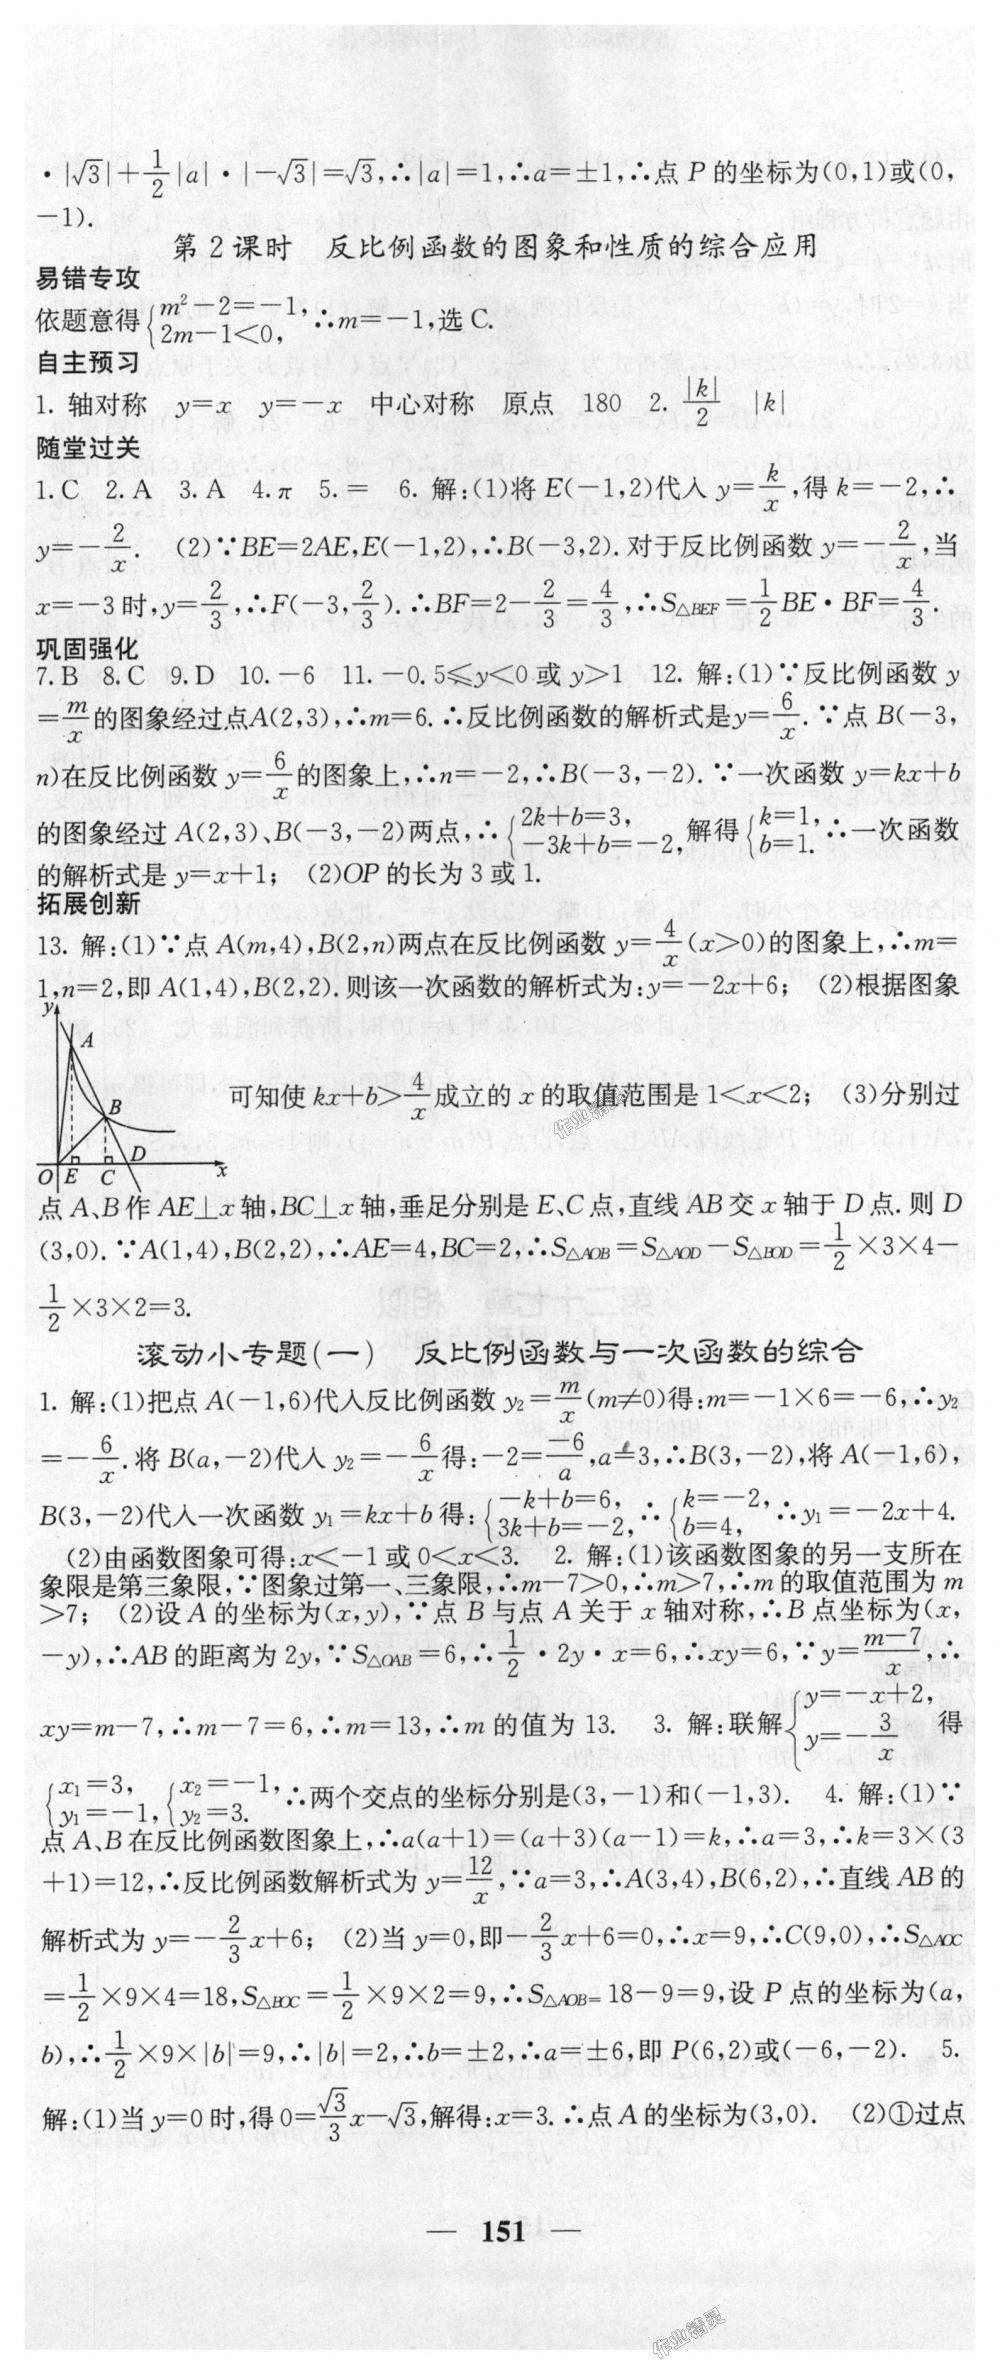 ·|√3|+1/2|a|·|−√3|=√3,∴|a|=1,∴a=±1,∴点 P 的坐标为(0,1)或(0,
−1).
第 2 课时　反比例函数的图象和性质的综合应用
易错专攻
依题意得{m²−2=−1, 2m−1<0, ∴m=−1,选 C.
自主预习
1. 轴对称　y=x　y=−x　中心对称　原点　180　2. |k|/2　|k|
随堂过关
1. C　2. A　3. A　4. π　5. =　6. 解:(1)将 E(−1,2)代入 y=k/x,得 k=−2,∴
y=−2/x.　(2)∵BE=2AE,E(−1,2),∴B(−3,2). 对于反比例函数 y=−2/x,当
x=−3 时,y=2/3,∴F(−3,2/3). ∴BF=2−2/3=4/3,∴S△BEF=1/2BE·BF=4/3.
巩固强化
7. B　8. C　9. D　10. −6　11. −0.5≤y<0 或 y>1　12. 解:(1)∵反比例函数 y
=m/x的图象经过点A(2,3),∴m=6. ∴反比例函数的解析式是y=6/x. ∵点 B(−3,
n)在反比例函数 y=6/x的图象上,∴n=−2,∴B(−3,−2). ∵一次函数 y=kx+b
的图象经过 A(2,3)、B(−3,−2)两点,∴{2k+b=3, −3k+b=−2, 解得{k=1, b=1. ∴一次函数
的解析式是 y=x+1;　(2)OP 的长为 3 或 1.
拓展创新
13. 解:(1)∵点 A(m,4),B(2,n)两点在反比例函数 y=4/x(x>0)的图象上,∴m=
1,n=2,即 A(1,4),B(2,2). 则该一次函数的解析式为:y=−2x+6;　(2)根据图象
y
A
B
D
O E C x
可知使 kx+b>4/x成立的 x 的取值范围是 1<x<2;　(3)分别过
点 A、B 作 AE⊥x 轴,BC⊥x 轴,垂足分别是 E、C 点,直线 AB 交 x 轴于 D 点. 则 D
(3,0). ∵A(1,4),B(2,2),∴AE=4,BC=2,∴S△AOB=S△AOD−S△BOD=1/2×3×4−
1/2×3×2=3.
滚动小专题(一)　反比例函数与一次函数的综合
1. 解:(1)把点 A(−1,6)代入反比例函数 y₂=m/x(m≠0)得:m=−1×6=−6,∴y₂
=−6/x. 将 B(a,−2)代入 y₂=−6/x得:−2=−6/a,a=3,∴B(3,−2),将 A(−1,6),
B(3,−2)代入一次函数 y₁=kx+b 得:{−k+b=6, 3k+b=−2, ∴{k=−2, b=4, ∴y₁=−2x+4.
(2)由函数图象可得:x<−1 或 0<x<3.　2. 解:(1)该函数图象的另一支所在
象限是第三象限,∵图象过第一、三象限,∴m−7>0,∴m>7,∴m 的取值范围为 m
>7;　(2)设 A 的坐标为(x,y),∵点 B 与点 A 关于 x 轴对称,∴B 点坐标为(x,
−y),∴AB 的距离为 2y,∵S△OAB=6,∴1/2·2y·x=6,∴xy=6,∵y=m−7/x,∴
xy=m−7,∴m−7=6,∴m=13,∴m 的值为 13.　3. 解:联解{y=−x+2, y=−3/x 得
{x₁=3, y₁=−1, {x₂=−1, y₂=3. ∴两个交点的坐标分别是(3,−1)和(−1,3).　4. 解:(1)∵
点 A、B 在反比例函数图象上,∴a(a+1)=(a+3)(a−1)=k,∴a=3,∴k=3×(3
+1)=12,∴反比例函数解析式为 y=12/x,∵a=3,∴A(3,4),B(6,2),∴直线 AB 的
解析式为 y=−2/3x+6;　(2)当 y=0,即−2/3x+6=0,∴x=9,∴C(9,0),∴S△AOC
=1/2×9×4=18,S△BOC=1/2×9×2=9,∴S△AOB=18−9=9,设 P 点的坐标为(a,
b),∴1/2×9×|b|=9,∴|b|=2,∴b=±2,∴a=±6,即 P(6,2)或(−6,−2).　5.
解:(1)当 y=0 时,得 0=√3/3x−√3,解得:x=3. ∴点 A 的坐标为(3,0).　(2)①过点
— 151 —
作业精灵
作业精灵